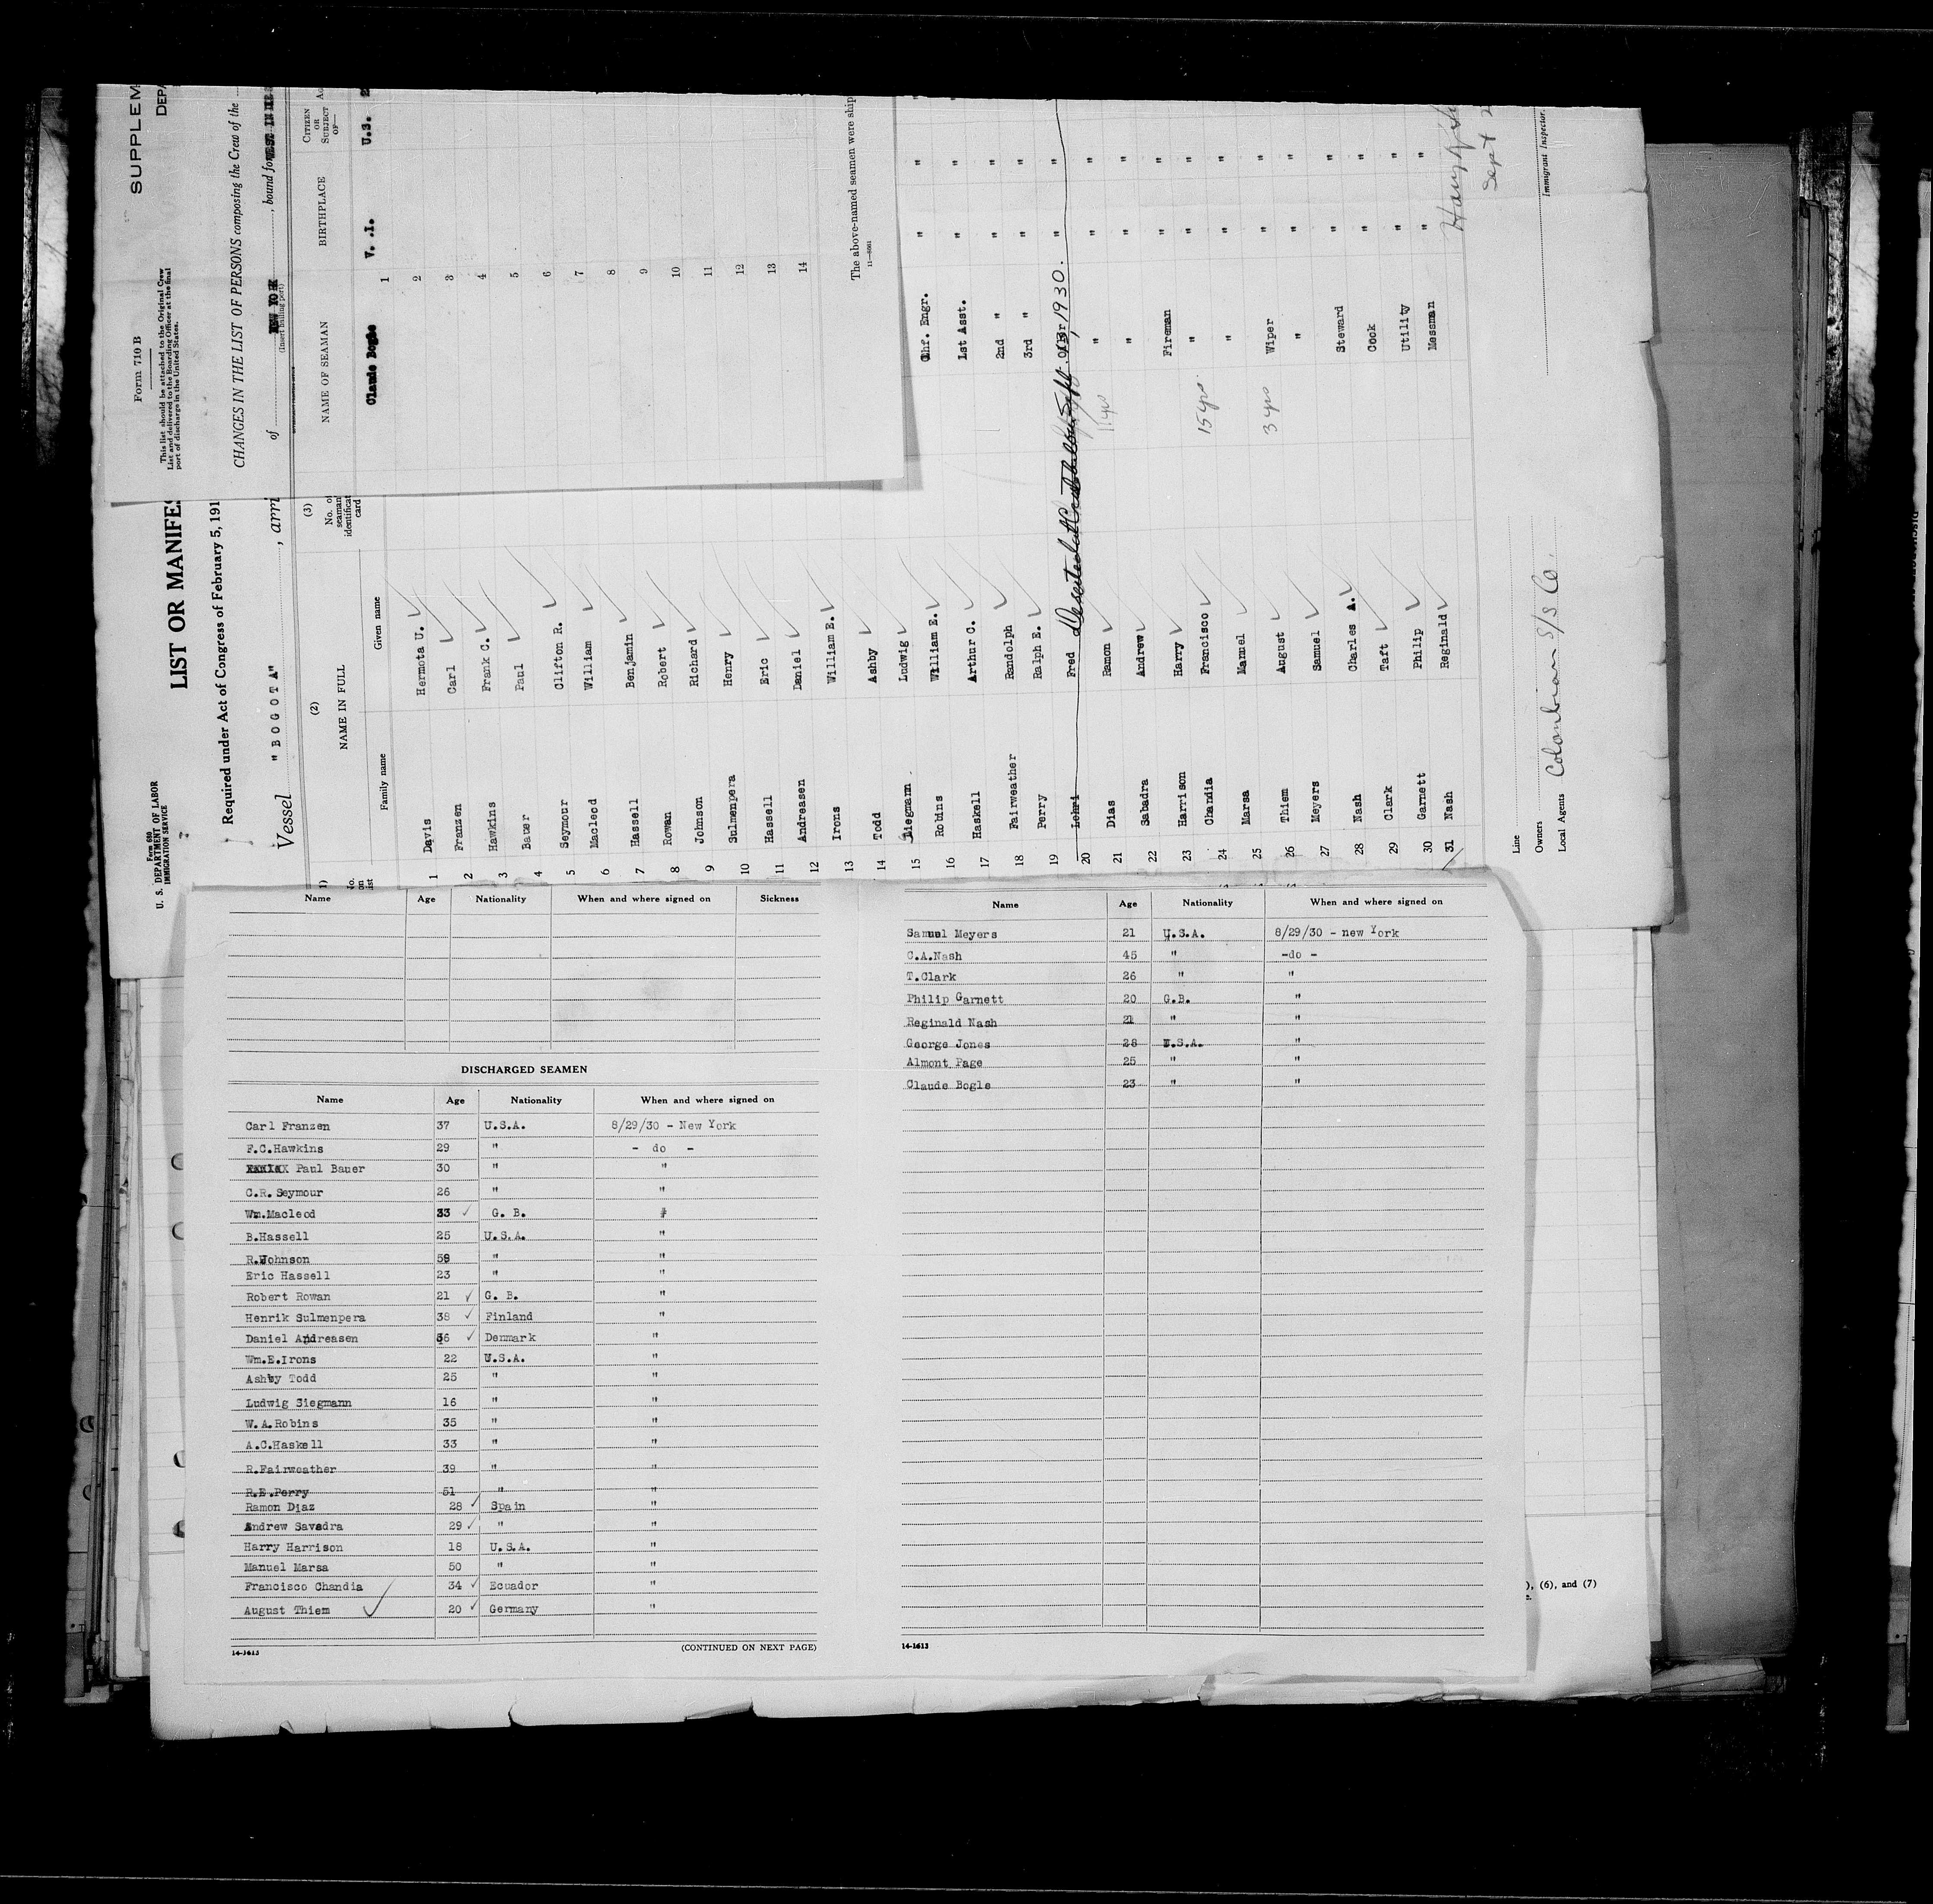 SUPPLEM
DEPA
Form 710 B
This list should be attached to the Original Crew
List and delivered to the Boarding Officer at the final
port of discharge in the United States.
CHANGES IN THE LIST OF PERSONS composing the Crew of the
of NEW YORK, bound for WEST INDIES
(Insert sailing port)
NAME OF SEAMAN BIRTHPLACE CITIZEN OR SUBJECT OF—
Claude Bogle V. .I. U.S. 2
1
2
3
4
5
6
7
8
9
10
11
12
13
14
The above-named seamen were ship
Form 680
U. S. DEPARTMENT OF LABOR
IMMIGRATION SERVICE
LIST OR MANIFES
Required under Act of Congress of February 5, 191
Vessel "BOGOTA", arri
(2) (3)
NAME IN FULL
No. of seaman's identification card
Family name Given name
1 Davis Hermota U.
2 Franzen Carl
3 Hawkins Frank C.
4 Bauer Paul
5 Seymour Clifton R.
6 Macleod William
7 Hassell Benjamin
8 Rowan Robert
9 Johnson Richard
10 Sulmenpera Henry
11 Hassell Eric
12 Andreasen Daniel
13 Irons William E.
14 Todd Ashby
15 Siegmann Ludwig
16 Robins William E. Chf. Engr. " "
17 Haskell Arthur C. 1st Asst. " "
18 Fairweather Randolph 2nd " " "
19 Perry Ralph E. 3rd " " "
20 Lehri Fred Oiler " "
Deserted at Sept. 1930.
21 Dias Ramon 11 yrs " " "
22 Sabadra Andrew " " "
23 Harrison Harry Fireman " "
24 Chandia Francisco 15 yrs. " " "
25 Marsa Manuel " " "
26 Thiem August 3 yrs Wiper " "
27 Meyers Samuel " " "
28 Nash Charles A. Steward " "
29 Clark Taft Cock " "
30 Garnett Philip Utility " "
31 Nash Reginald Messman " "
Sept 2
Immigrant Inspector.
Line
Owners
Local Agents Colombian S/S Co.
Name Age Nationality When and where signed on Sickness
DISCHARGED SEAMEN
Name Age Nationality When and where signed on
Carl Franzen 37 U.S.A. 8/29/30 - New York
F.C.Hawkins 29 " - do -
Paul Bauer 30 " "
C.R.Seymour 26 " "
Wm.Macleod 33 G. B. "
B.Hassell 25 U.S.A. "
R.Johnson 58 " "
Eric Hassell 23 " "
Robert Rowan 21 G. B. "
Henrik Sulmenpera 38 Finland "
Daniel Andreasen 36 Denmark "
Wm.E.Irons 22 U.S.A. "
Ashby Todd 25 " "
Ludwig Siegmann 16 " "
W.A.Robins 35 " "
A.C.Haskell 33 " "
R.Fairweather 39 " "
R.E.Perry 51 " "
Ramon Diaz 28 Spain "
Andrew Savadra 29 " "
Harry Harrison 18 U.S.A. "
Manuel Marsa 50 " "
Francisco Chandia 34 Ecuador "
August Thiem 20 Germany "
14-1613 (CONTINUED ON NEXT PAGE)
Name Age Nationality When and where signed on
Samuel Meyers 21 U.S.A. 8/29/30 - new York
C.A.Nash 45 " -do -
T.Clark 26 " "
Philip Garnett 20 G.B. "
Reginald Nash 21 " "
George Jones 28 U.S.A. "
Almont Page 25 " "
Claude Bogle 23 " "
14-1613
), (6), and (7)